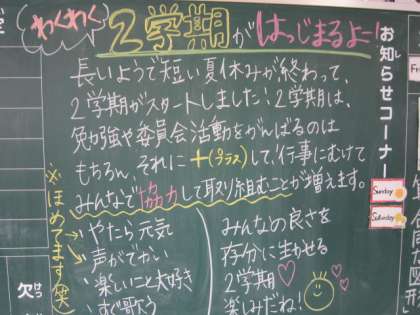 わくわく
2学期がはっじまるよー!
お知らせコーナー
長いようで短い夏休みが終わって、
2学期がスタートしました!2学期は、
勉強や委員会活動をがんばるのは
もちろん、それに+(プラス)して、行事にむけて
みんなで協力して取り組むことが増えます。
※ほめてます(笑)
やたら元気
声がでかい
楽しいこと大好き
すぐ歌う
みんなの良さを
存分に生かせる
2学期♡
楽しみだね!
Sunday
Saturday
欠
けつ